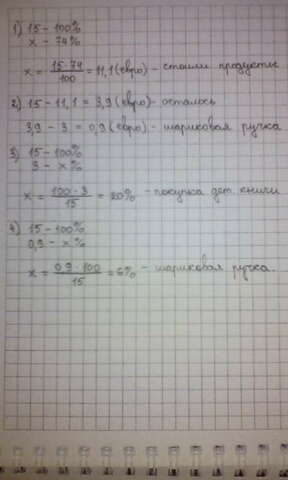 1) 15 - 100%
x - 74%
x = 15·74/100 = 11,1 (евро) - стоили продукты
2) 15 - 11,1 = 3,9 (евро) - осталось
3,9 - 3 = 0,9 (евро) - шариковая ручка
3) 15 - 100%
3 - x %
x = 100·3/15 = 20% - покупка дет. книги
4) 15 - 100%
0,9 - x %
x = 0,9·100/15 = 6% - шариковая ручка.